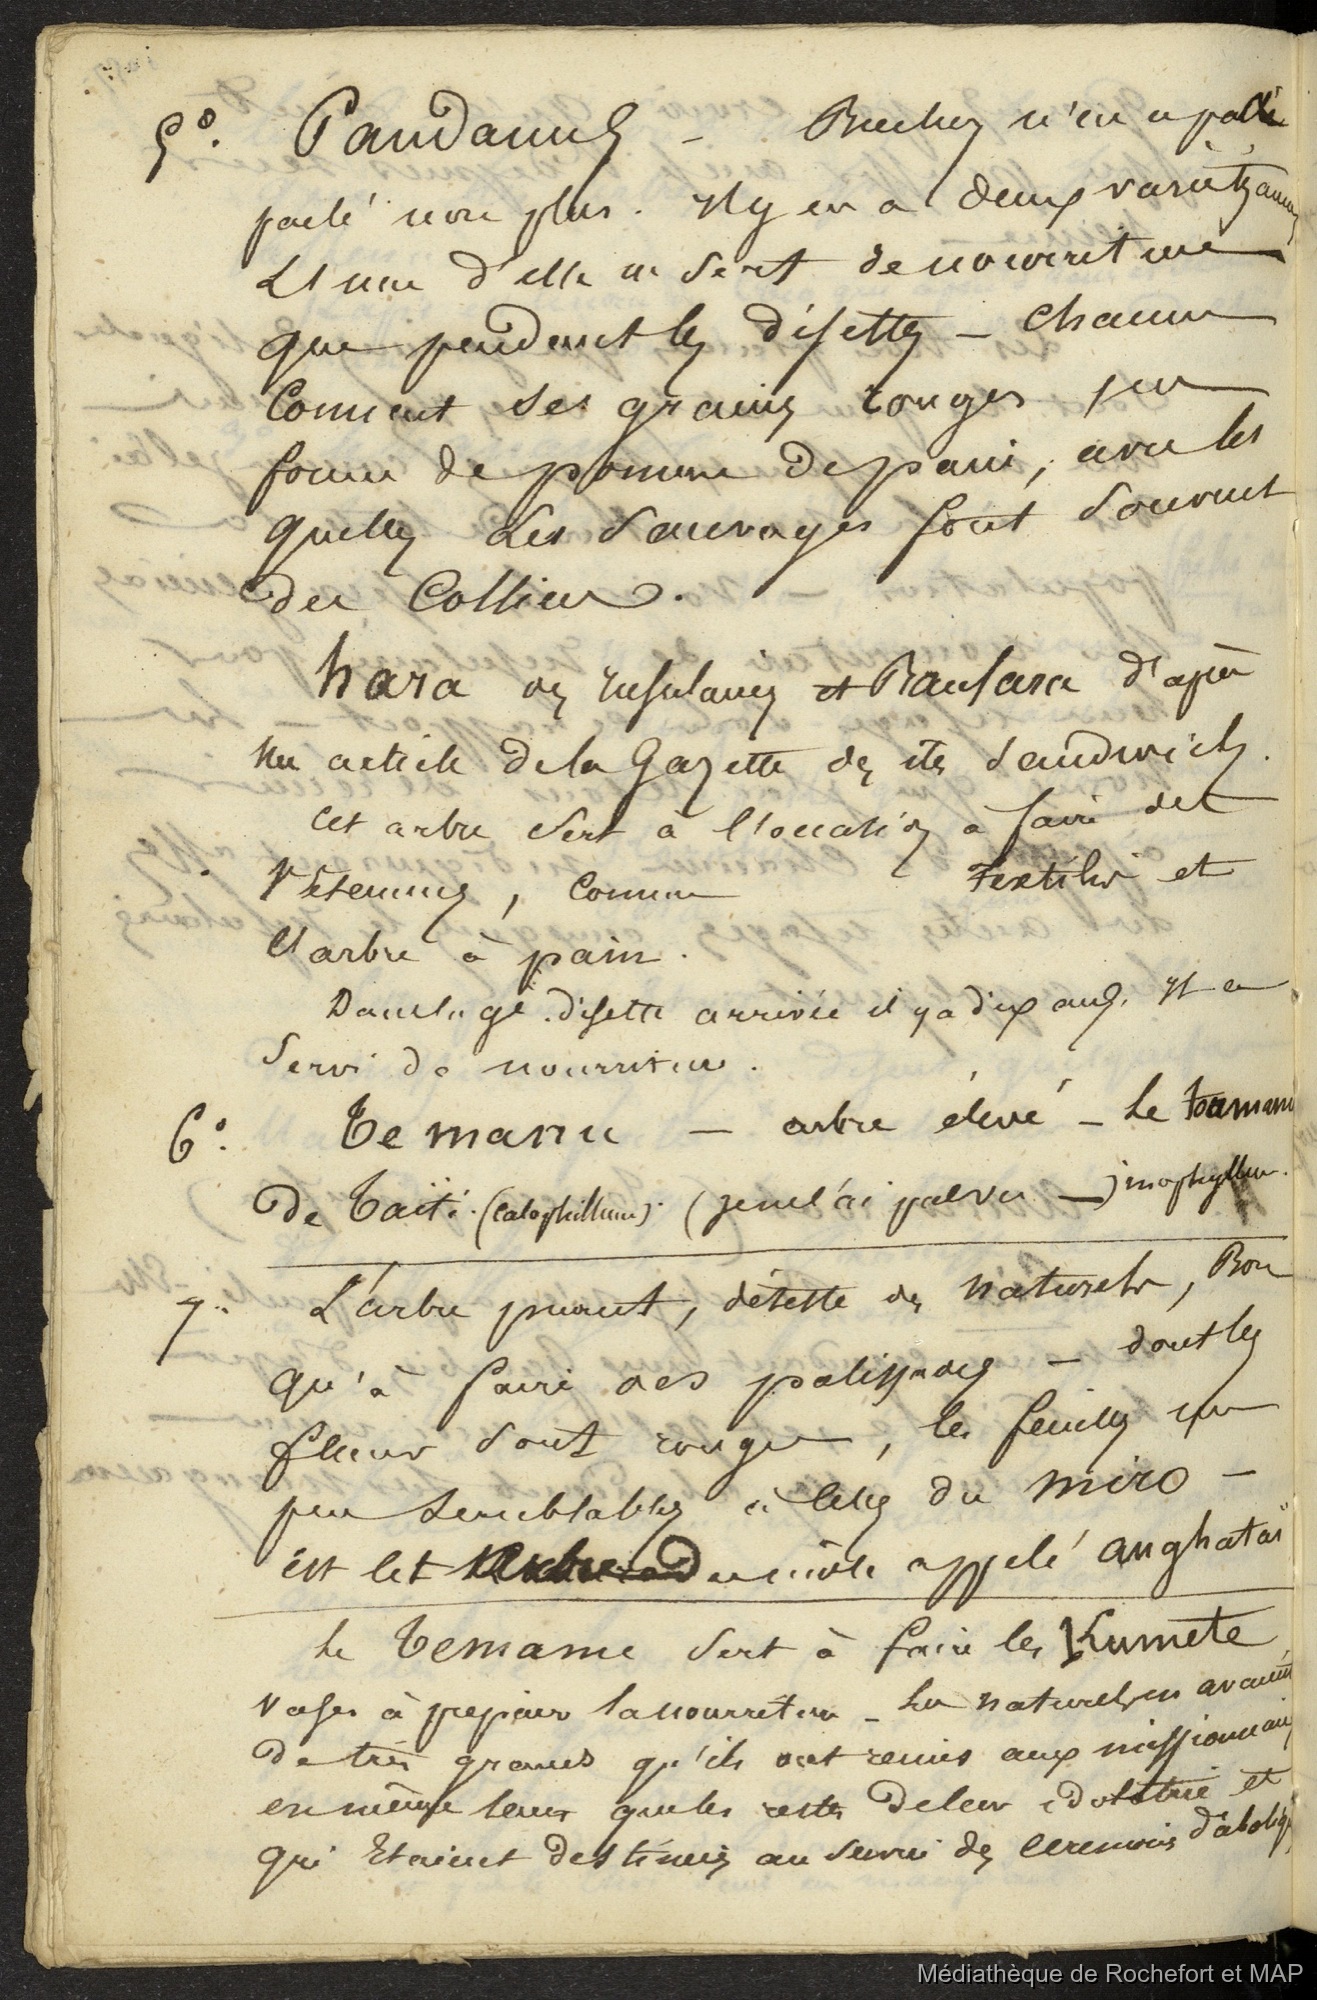 5°. Pandanus – Beechey n'en a pas
parlé non plus. Il y en a deux variétés
L'une d'elle ne sert de nourriture
que pendant les disettes – chacune
Connait ses graines rouges en
forme de pomme de pain, avec les
quelles les Sauvages font souvent
des Colliers.
hara des Insulaires et d'après
un article de la Gazette des îles Sandwich.
Cet arbre sert à l'occasion à faire des
Vêtemens, Comme Textiles et
l'arbre à pain.
Dans la gde. disette arrivée il y a dix ans. Il a
Servi de nourriture.
6°. Temanu – arbre élevé – Le tamanu
De Taïti. (Calophillum). (je ne l'ai pas vu –) inophyllum.
7° L'arbre puant, détesté des Naturels, Bon
qu'à faire des palissades – dont les
fleurs sont rouges, les feuilles un
peu semblables à celles du miro –
est cet appelé anghatai
Le Temanu sert à faire les Kumete
Vases à préparer la nourriture – Les naturels en avaient
de très grands qu'ils ont remis aux missionnaires
en même tems que les restes de leur idolatrie et
qui Etaient destinés au service des cérémonies diaboliq
Médiathèque de Rochefort et MAP